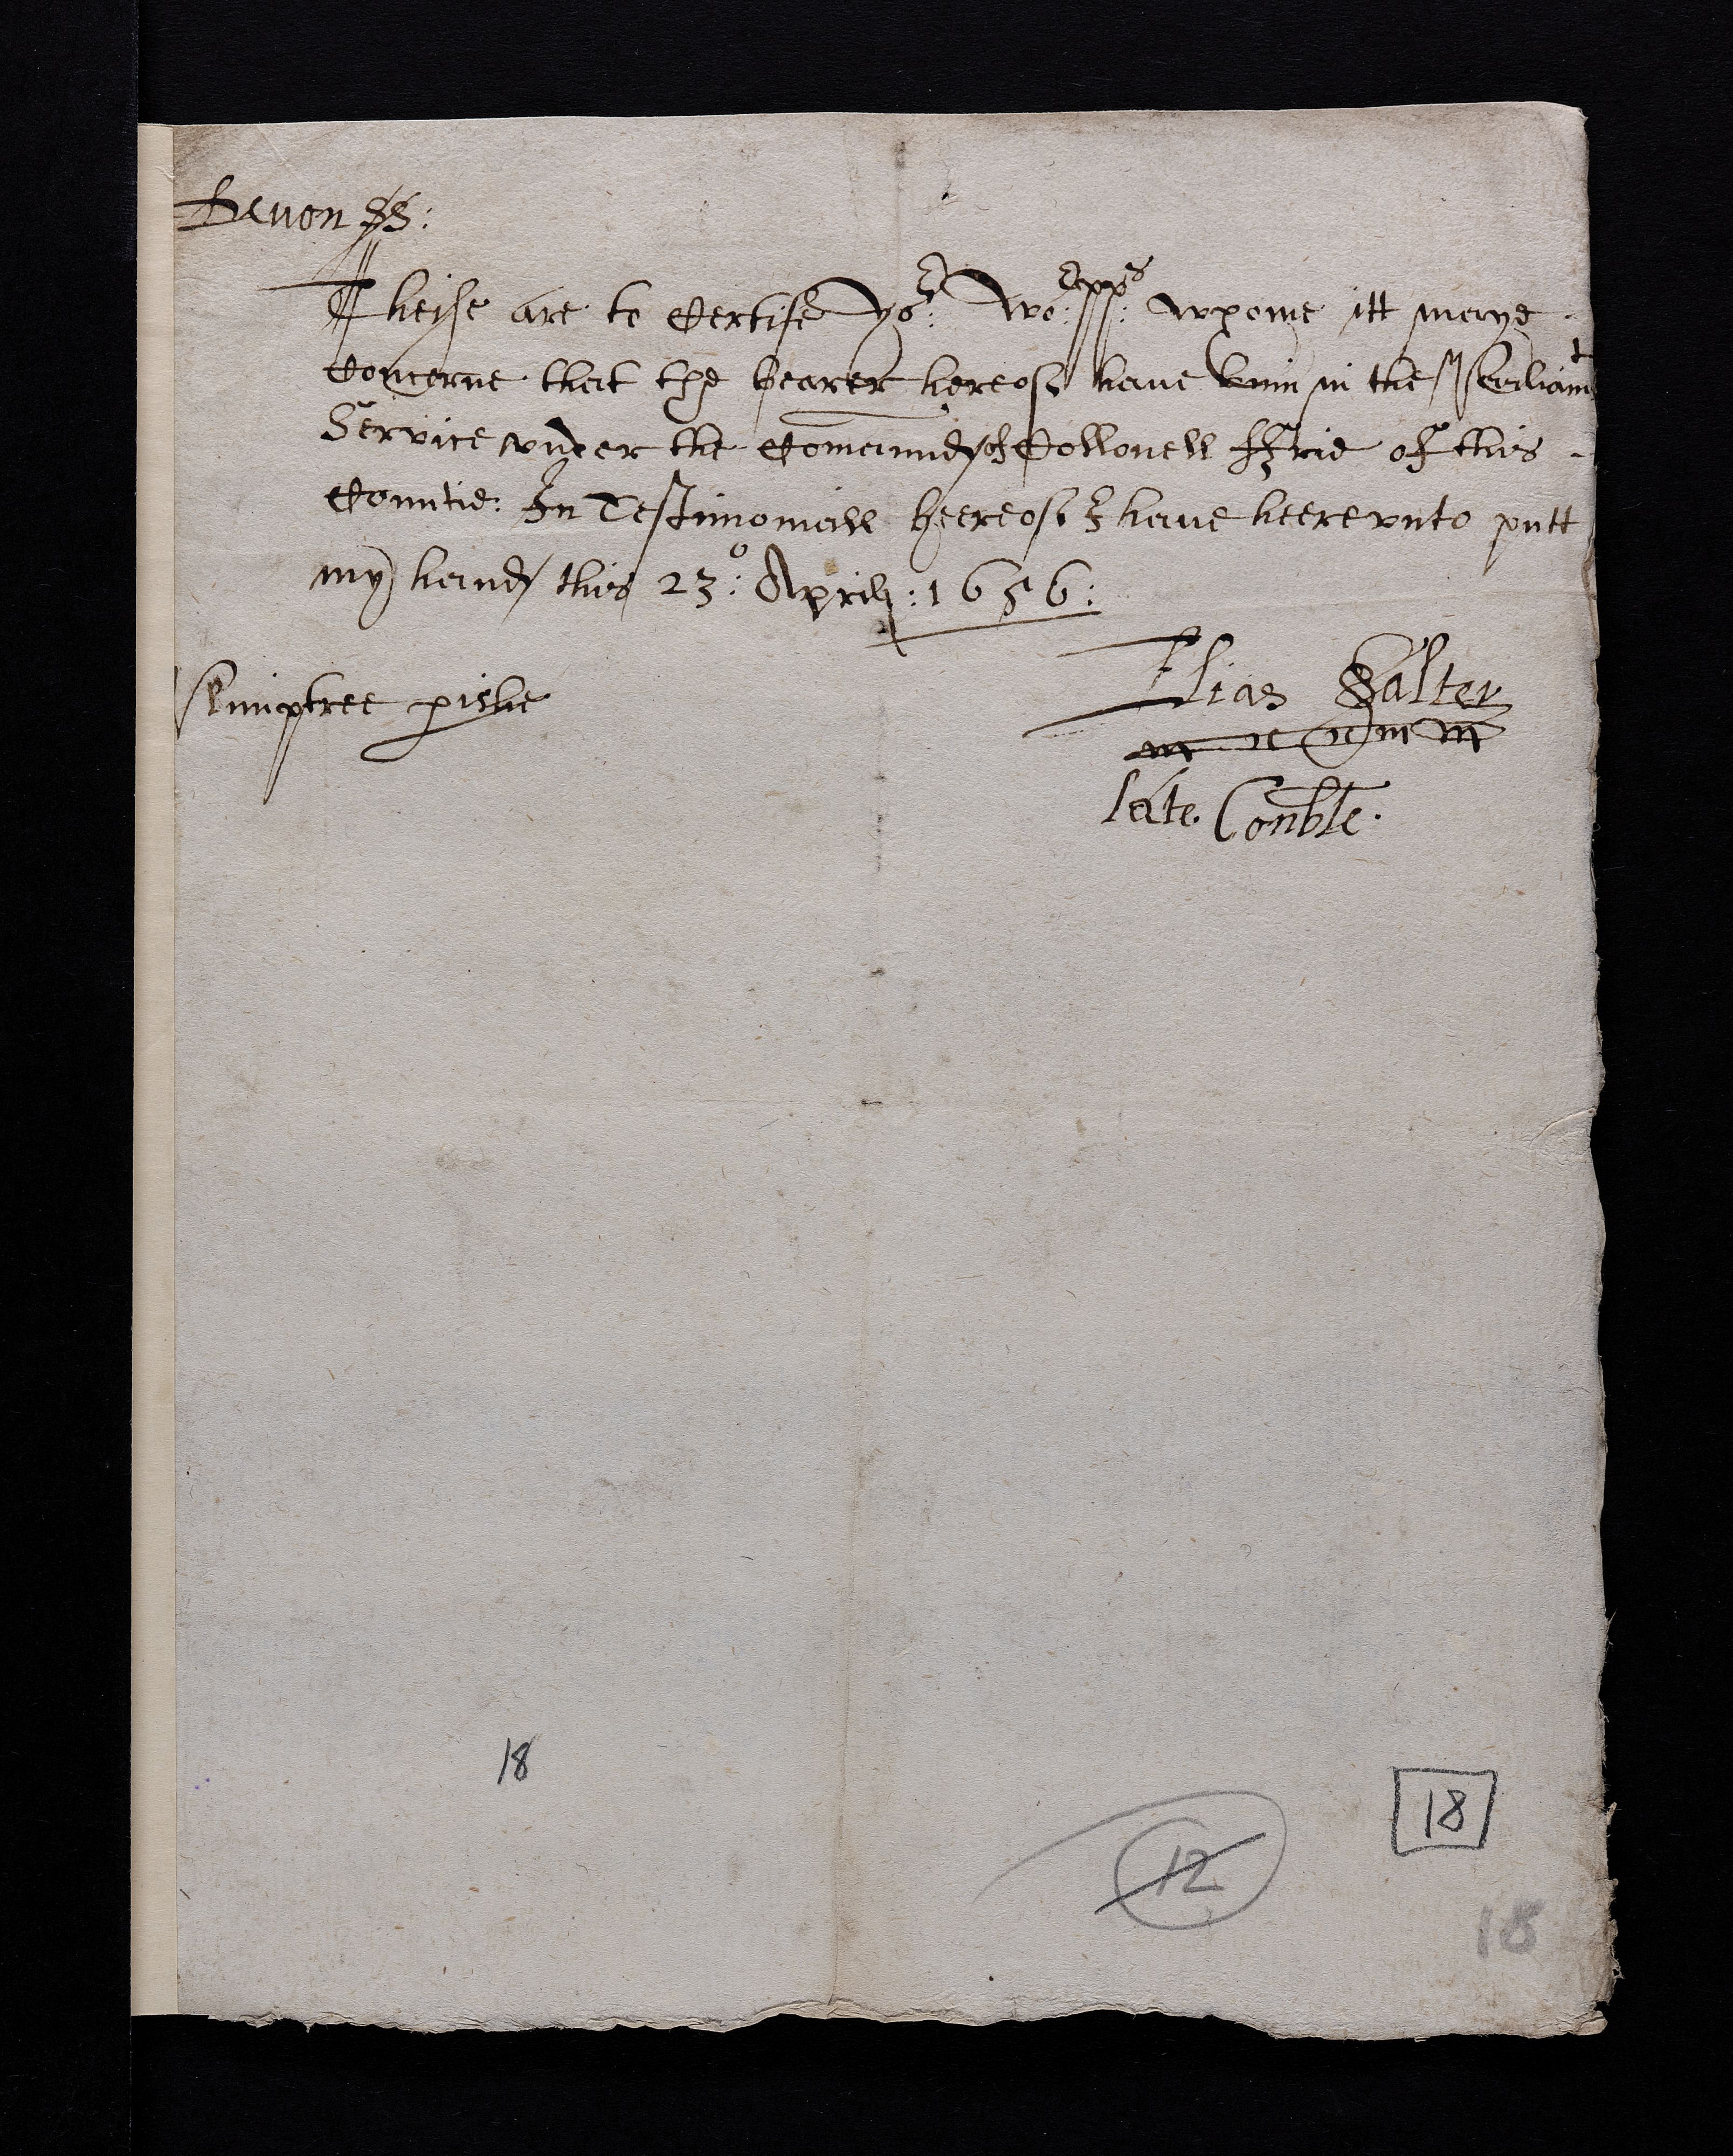 Devon SS:
Theise are to Certife yor: Wor:pps: wpome itt maye
Concerne that the bearer hereof haue binn in the Parliamt
Service vnder the Comaund of Collonell ffrie of this
Countie: In Testimoniall heereof I haue heere vnto putt
my hand this 23o: Aprill: 1656:
Plimptree pishe
Elias Salter
late Conble.
18
18
12
18